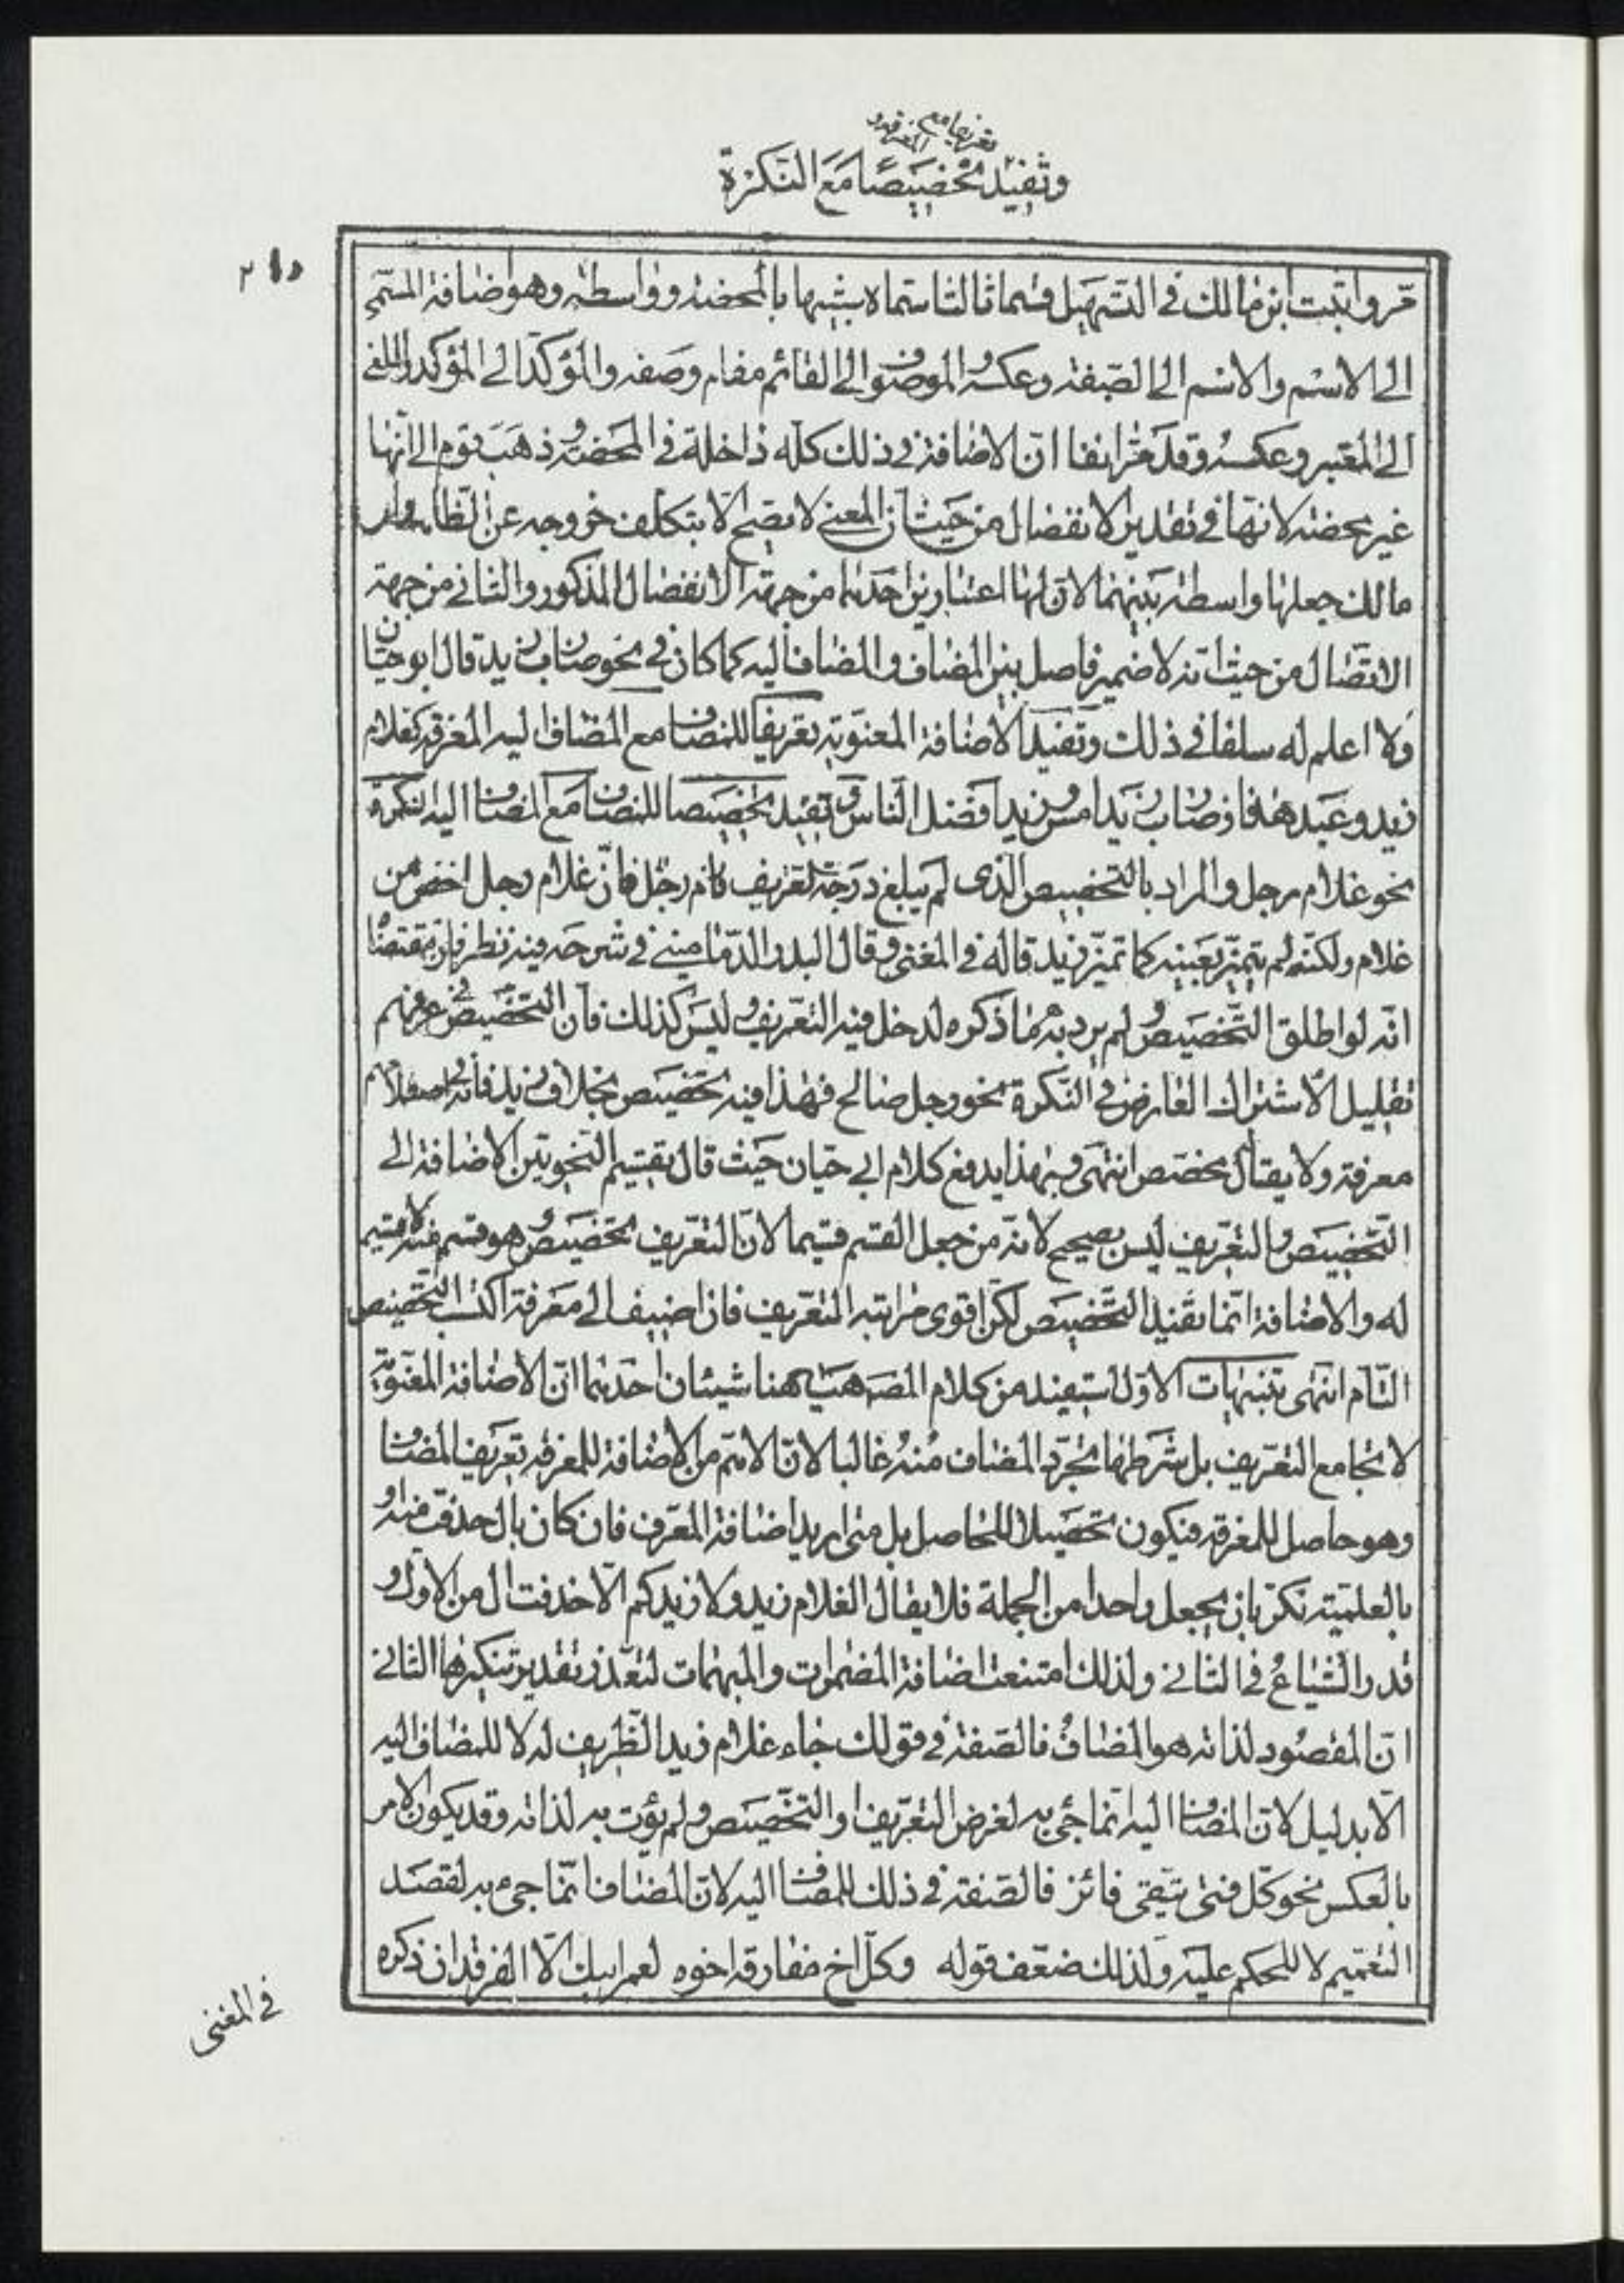 تعريفا مع المعرفة و
وتفيد تخصيصا مع النكرة
٢١٥
مّر واثبت ابن مالك فى التسهيل قسما ثالثا سماه بشبيها بالمحضة وواسطة وهو اضافة المسمّى
الى الاسم والاسم الى الصّفة وعكسه والموصوف الى القائم مقام وصفه والمؤكّد الى المؤكّد والملغى
الى المعتبر وعكسه وقد مّر انفا انّ الاضافة فى ذلك كلّه داخلة فى المحضة وذهب قوم الى انّها
غير محضة لانّها فى تقدير الانفصال من حيث انّ المعنى لا يصّح الّا بتكلّف خروجه عن الظاهر وابن
مالك جعلها واسطة بينهما لانّ لها اعتبارين احدهما من جهة الانفصال المذكور والثانى من جهة
الاتصال من حيث انّه لا ضمير فاصل بين المضاف والمضاف اليه كما كان فى نحو ضارب زيد قال ابو حيّان
ولا اعلم له سلفا فى ذلك وتفيد الاضافة المعنويّة تعريفا للمضاف مع المضاف اليه المعرفة كغلام
زيد وعبد هذا وضارب زيد امس وزيد افضل النّاس وتفيد تخصيصا للمضاف مع المضاف اليه النكرة
نحو غلام رجل والمراد بالتّخصيص الّذى لم يبلغ درجة تعريف غلام رجل فانّ غلام رجل اخصّ من
غلام ولكنّه لم يتميّز بعينه كما تميّز زيد قاله فى المغنى وقال البدر الدّمامينى فى شرحه فيه نظر فان مقتضاه
انّه لو اطلق التّخصيص ولم يرد به ما ذكره لدخل فيه التعّريف وليس كذلك فانّ التّخصيص فى عرفهم
تقليل الاشتراك العارض فى النّكرة نحو رجل صالح فهذا فيه تخصيص بخلاف زيد فانّه
معرفة ولا يقال مخصّص انتهى وبهذا يدفع كلام ابى حيّان حيث قال تقسيم النّحويّين الاضافة الى
التّخصيص والتعّريف ليس بصحيح لانّه من جعل القسم قسيما لانّ التعّريف تخصيص وهو قسم منه لا قسيم
له والاضافة انّما تفيد التّخصيص لكن اقوى مراتبه التعّريف فان اضيف الى معرفة اكتسب التّخصيص
التّام انتهى تنبيهات الاوّل استفيد من كلام المصـ هيهنا شيئان احدهما انّ الاضافة المعنويّة
لا تجامع التعّريف بل شرطها تجرّد المضاف منه غالبا لانّ الاهّم من الاضافة للمعرفة تعريف المضاف
وهو حاصل للمعرفة فيكون تحصيلا للحاصل بل متى اريد اضافة المعّرف فان كان بال حذفت منه او
بالعلميّة نكّر بان يجعل واحدا من الجملة فلا يقال الغلام زيد ولا زيدكم الّا حذفت ال من الاول و
قدر الشّياع فى الثانى ولذلك امتنعت اضافة المضمرات والمبهمات لتعذّر تقدير تنكيرها الثانى
انّ المقصود لذاته هو المضاف فالصّفة فى قولك جاء غلام زيد الظّريف له لا للمضاف اليه
الّا بدليل لانّ المضاف اليه انّما جئ به لغرض التعّريف او التّخصيص ولم يؤت به لذاته وقد يكون الامر
بالعكس نحو كلّ فتى يتّقى فائز فالصّفة فى ذلك للمضاف اليه لانّ المضاف انّما جئ به لقصد
التعميم لا للحكم عليه ولذلك ضعّف قوله وكلّ اخ مفارقه اخوه لعمر ابيك الّا الفرقدان ذكره
فى المغنى